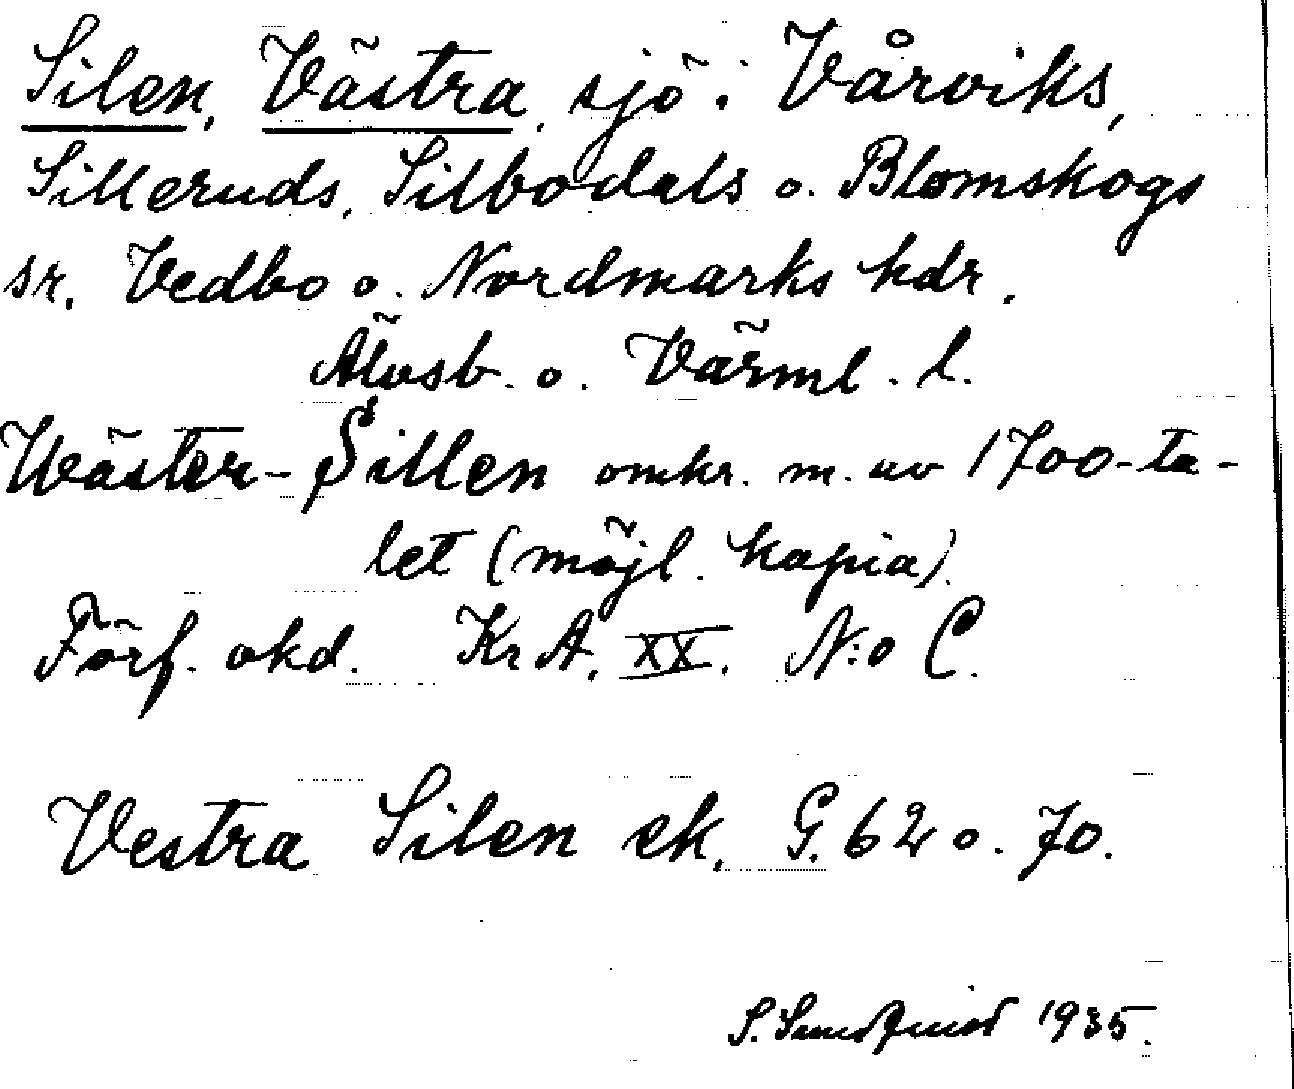 Silen, Västra, sjö i Vårviks,
Silleruds, Silbodals o. Blomskogs
sr. Vedbo o. Nordmarks hdr.
Älvsb. o. Värml. l.
Wäster-Sillen omkr. m. av 1700-ta-
let (möjl. kopia).
Förf. okd. Kr A. XX. N:o C.
Vestra Silen ek. G. 62 o. 70.
S. 1935.